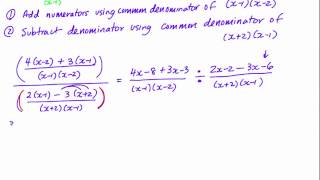 (x-1)
① Add numerators using common denominator of (x-1)(x-2)
② Subtract denominator using common denominator of
(x+2)(x-1)
(4(x-2) + 3(x-1) / (x-1)(x-2)) / (2(x-1) - 3(x+2) / (x+2)(x-1)) = 4x-8 + 3x-3 / (x-1)(x-2) ÷ 2x-2 - 3x-6 / (x+2)(x-1)
=